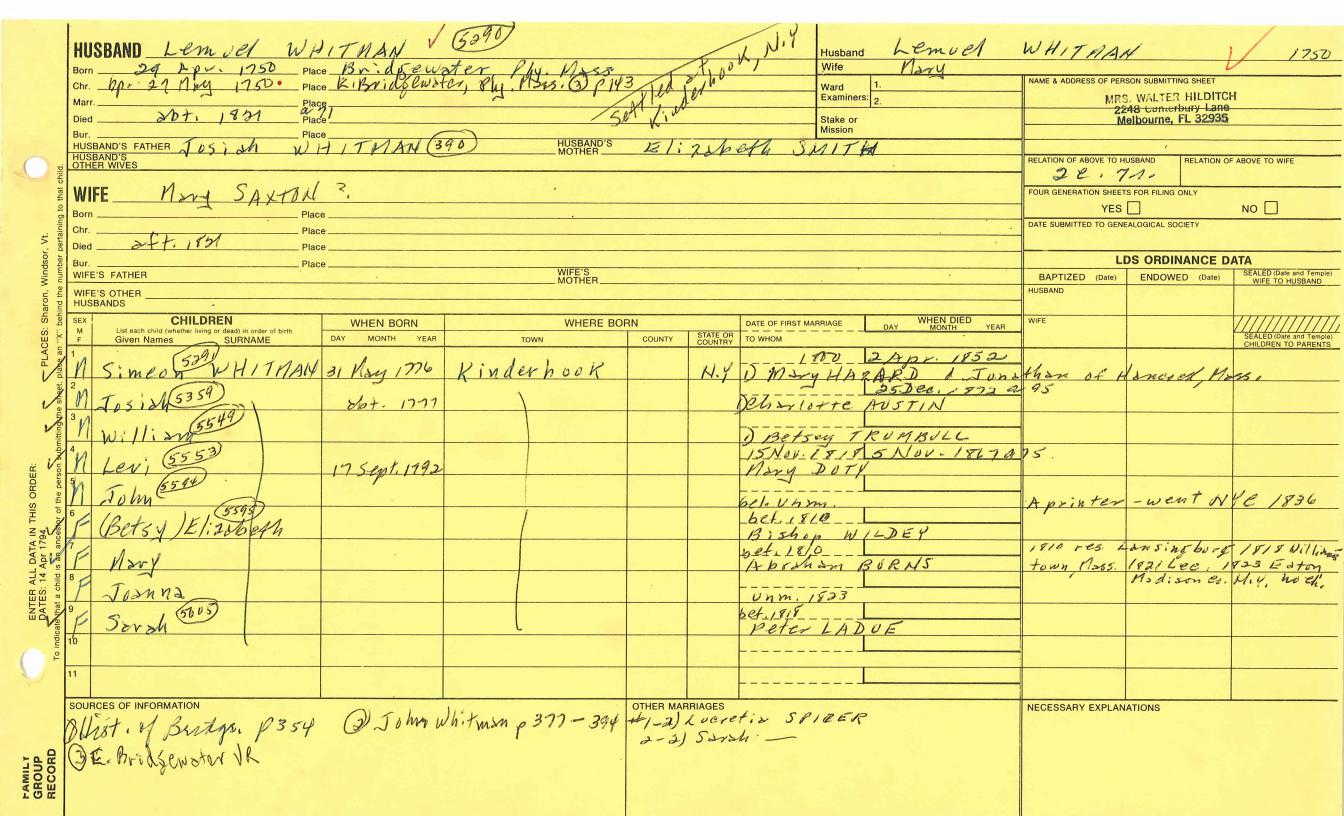 HUSBAND Lemuel WHITMAN ✓ 5290
Born 29 Apr. 1750 Place Bridgewater Ply. Mass
Chr. bp. 27 May 1750 Place E. Bridgewater, Ply. Mass. ③ p143
Marr. Place
Died abt. 1821 a 71 Place
Bur. Place
Settled at Kinderhook, N.Y
HUSBAND'S FATHER Josiah WHITMAN 390 HUSBAND'S MOTHER Elizabeth SMITH
HUSBAND'S OTHER WIVES
Husband Lemuel WHITMAN ✓ 1750
Wife Mary
Ward Examiners: 1. 2.
Stake or Mission
NAME & ADDRESS OF PERSON SUBMITTING SHEET
MRS. WALTER HILDITCH
2248 Canterbury Lane
Melbourne, FL 32935
RELATION OF ABOVE TO HUSBAND RELATION OF ABOVE TO WIFE
FOUR GENERATION SHEETS FOR FILING ONLY
YES NO
DATE SUBMITTED TO GENEALOGICAL SOCIETY
WIFE Mary SAXTON ?
Born Place
Chr. Place
Died aft. 1821 Place
Bur. Place
WIFE'S FATHER WIFE'S MOTHER
WIFE'S OTHER HUSBANDS
LDS ORDINANCE DATA
BAPTIZED (Date) ENDOWED (Date) SEALED (Date and Temple) WIFE TO HUSBAND
HUSBAND
WIFE
SEALED (Date and Temple) CHILDREN TO PARENTS
SEX M F
CHILDREN
List each child (whether living or dead) in order of birth
Given Names SURNAME
WHEN BORN
DAY MONTH YEAR
WHERE BORN
TOWN COUNTY STATE OR COUNTRY
DATE OF FIRST MARRIAGE
TO WHOM
WHEN DIED
DAY MONTH YEAR
1 M Simeon 5291 WHITMAN 31 May 1776 Kinderhook N.Y 1800 2 Apr. 1852
1) Mary HAZARD d Jonathan of Hancock, Mass.
2 M Josiah 5359 abt. 1777 25 Dec. 1872 a 95
Charlotte AUSTIN
3 M William 5549
1) Betsey TRUMBULL
4 M Levi 5553 17 Sept. 1792 15 Nov. 1818 5 Nov. 1867 a 75.
Mary DOTY
5 M John 5594
bet. unm. A printer - went NYC 1836
6 F (Betsy) Elizabeth 5595 bet. 1810
Bishop WILDEY
7 F Mary bet. 1810
Abraham BURNS
1810 res Lansingburg 1818 Williams
town, Mass. 1821 Lee, 1823 Eaton
Madison Co. N.Y. no ch.
8 F Joanna
unm. 1823
9 F Sarah 5605 bet. 1818
Peter LADUE
10
11
SOURCES OF INFORMATION
① Hist. of Bridge. p354 ② John Whitman p 377-394
③ E. Bridgewater VR
OTHER MARRIAGES
#1-2) Lucretia SPICER
2-2) Sarah —
NECESSARY EXPLANATIONS
ENTER ALL DATA IN THIS ORDER:
DATES: 14 Apr 1794 PLACES: Sharon, Windsor, Vt.
To indicate that a child is an ancestor of the person submitting the sheet, place an "X" behind the number pertaining to that child.
FAMILY GROUP RECORD